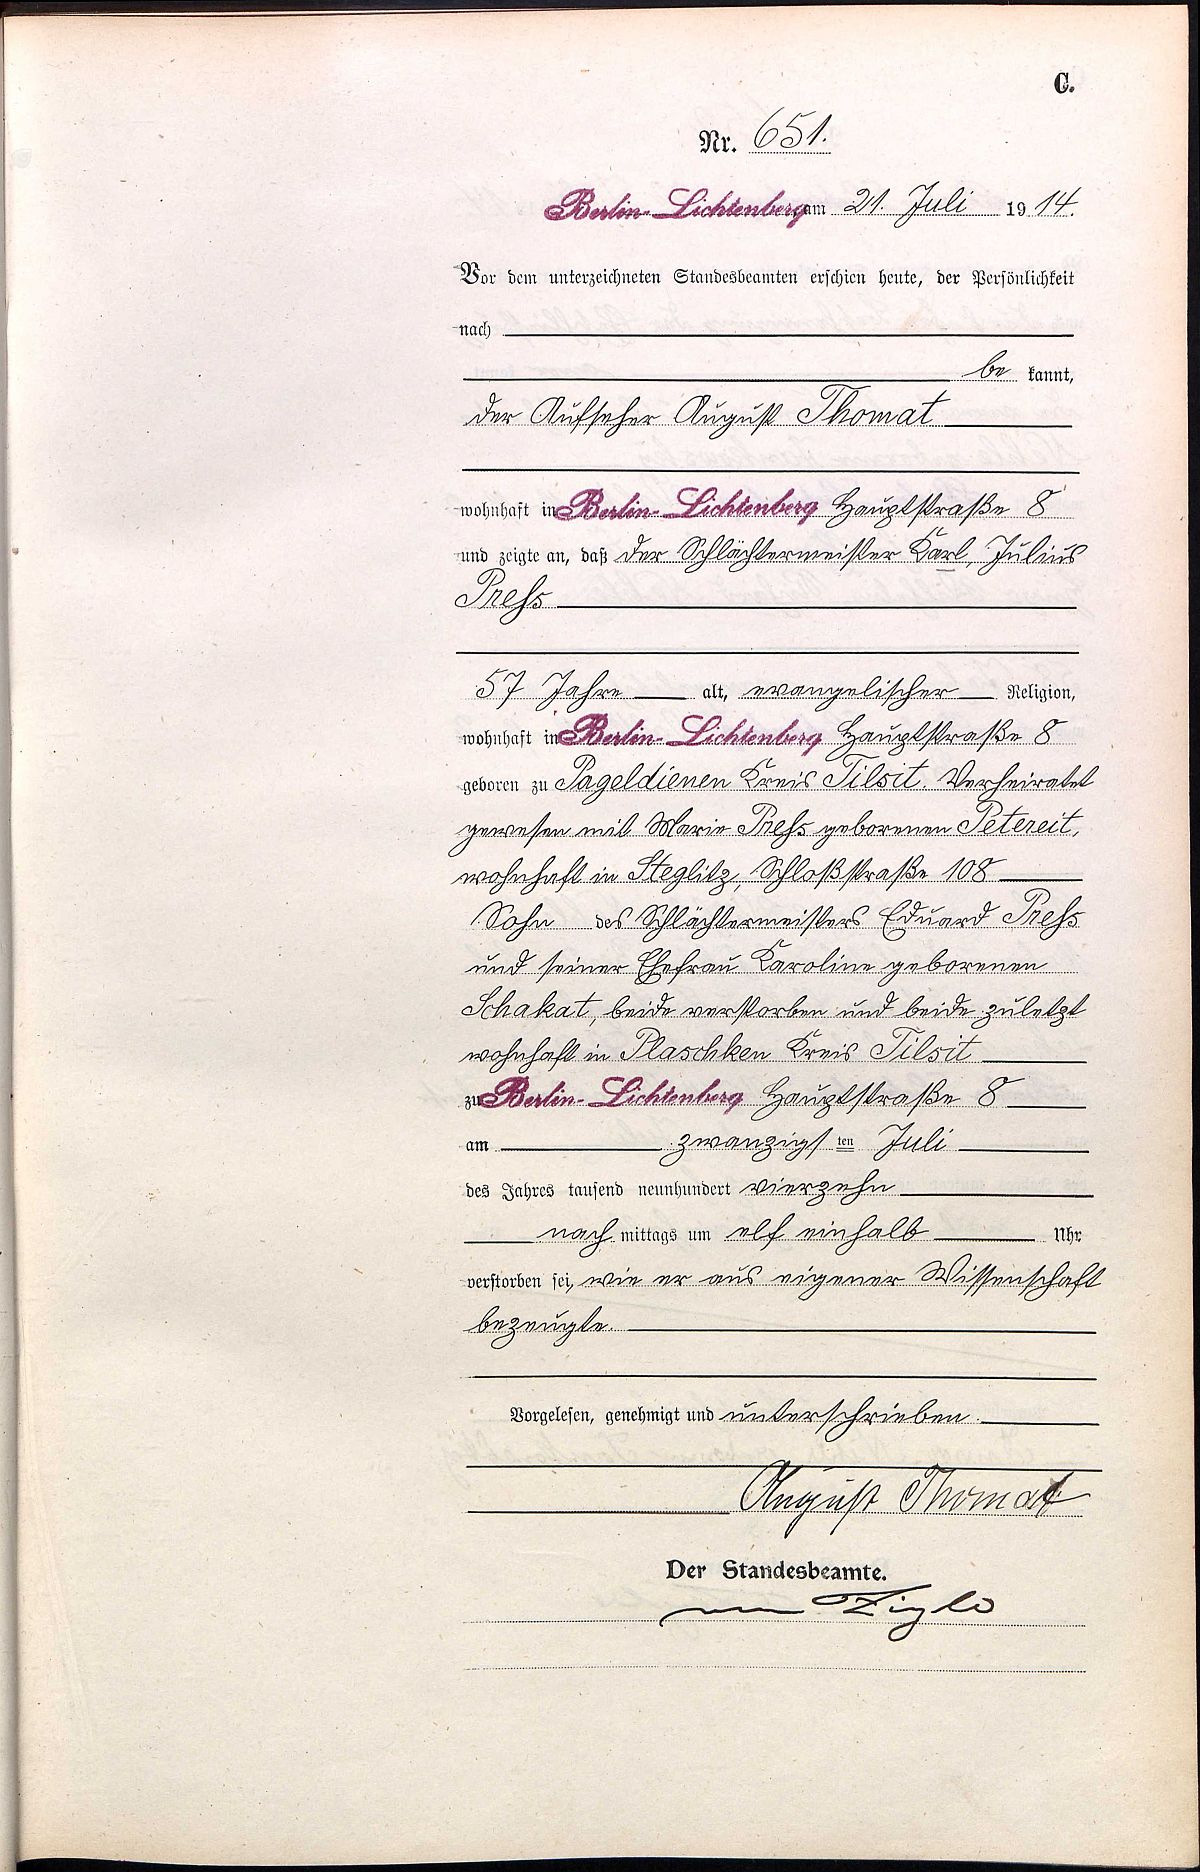 C.
Nr. 651.
Berlin-Lichtenberg am 21. Juli 1914.
Vor dem unterzeichneten Standesbeamten erschien heute, der Persönlichkeit
nach
be kannt,
der Aufseher August Thomat
wohnhaft in Berlin-Lichtenberg Hauptstraße 8
und zeigte an, daß der Schlächtermeister Karl, Julius
Preß
57 Jahre alt, evangelischer Religion,
wohnhaft in Berlin-Lichtenberg Hauptstraße 8
geboren zu Pageldienen Kreis Tilsit. Verheiratet
gewesen mit Marie Preß geborenen Petereit,
wohnhaft in Steglitz, Schloßstraße 108
Sohn des Schlächtermeisters Eduard Preß
und seiner Ehefrau Karoline geborenen
Schakat, beide verstorben und beide zuletzt
wohnhaft in Plaschken Kreis Tilsit
zu Berlin-Lichtenberg Hauptstraße 8
am zwanzigsten Juli
des Jahres tausend neunhundert vierzehn
nach mittags um elf einhalb Uhr
verstorben sei, wie er aus eigener Wissenschaft
bezeugte.
Vorgelesen, genehmigt und unterschrieben.
August Thomat
Der Standesbeamte.